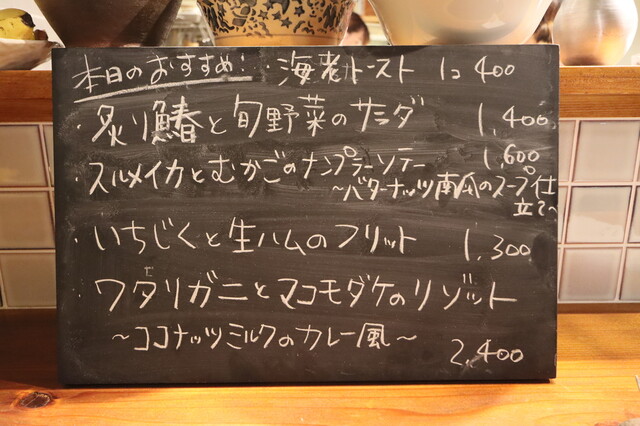 本日のおすすめ! ・海老トースト 1コ 400
・炙り鰆と旬野菜のサラダ 1,400
・スルメイカとむかごのナンプラーソテー 1,600
〜バターナッツ南瓜のスープ仕
立て〜
・いちじくと生ハムのフリット 1,300
・ワタリガニとマコモダケのリゾット
〜ココナッツミルクのカレー風〜
2,400